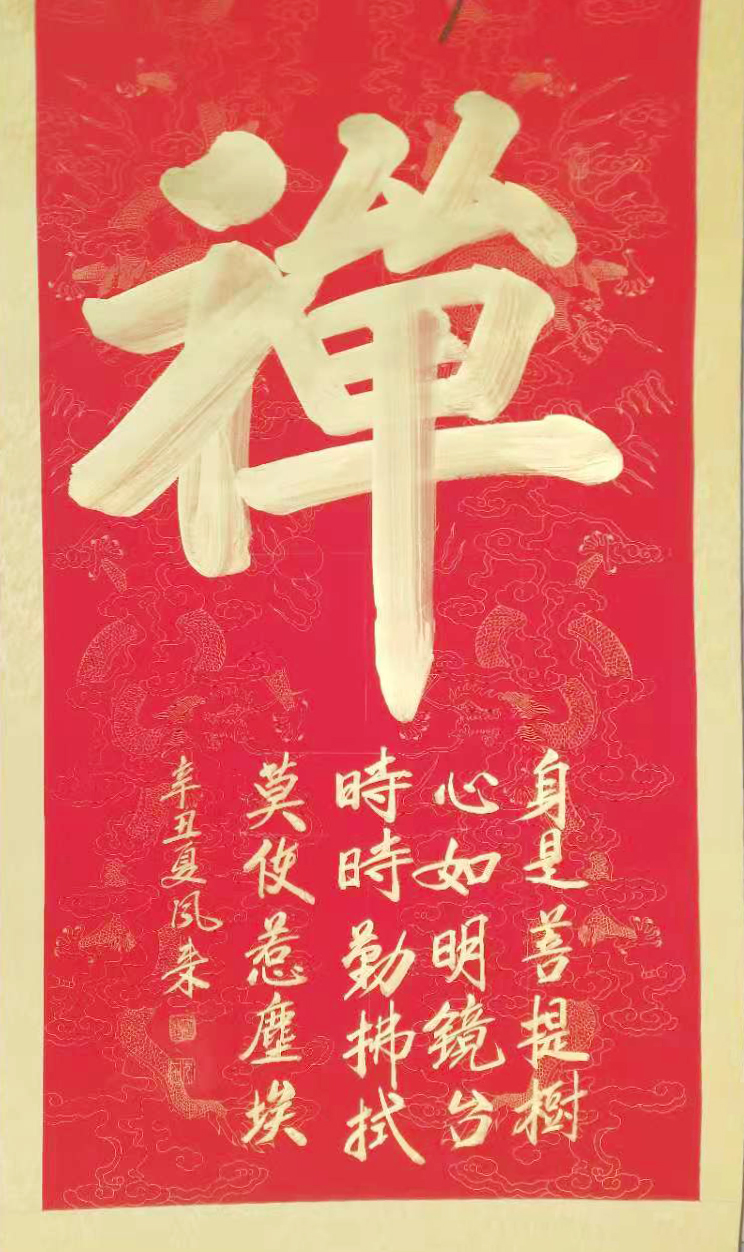 禅
身是菩提樹
心如明镜台
時時勤拂拭
莫使惹塵埃
辛丑夏风来